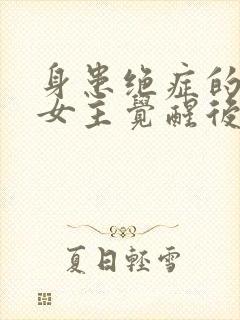 身患绝症的
女主覺醒後
夏日輕雪